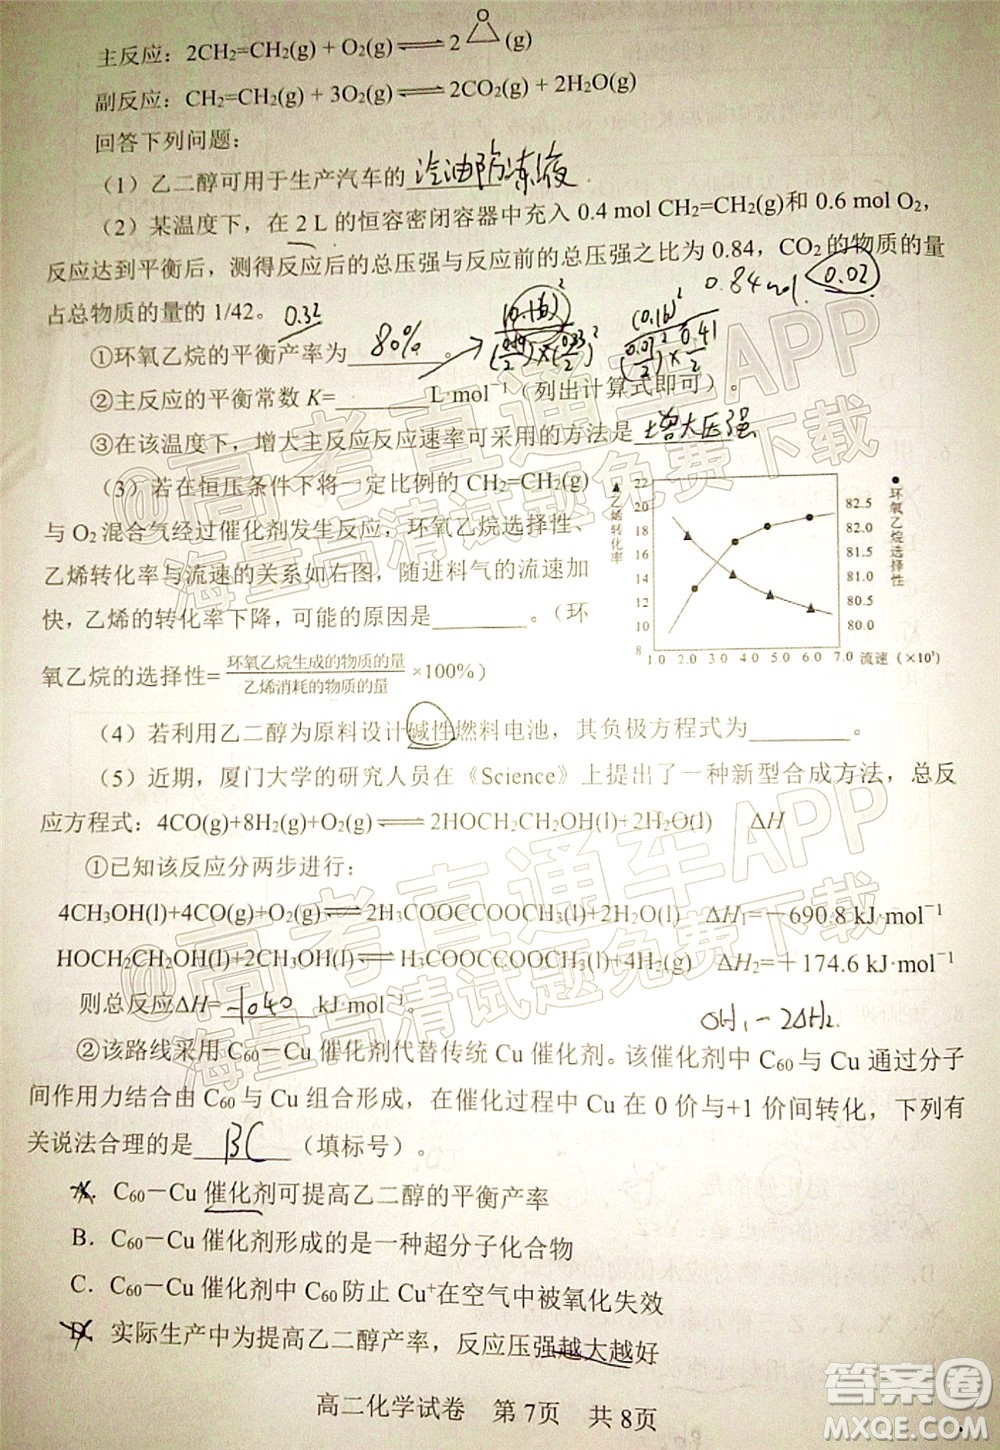 主反应：2CH₂=CH₂(g) + O₂(g) ⇌ 2 O (g)
副反应：CH₂=CH₂(g) + 3O₂(g) ⇌ 2CO₂(g) + 2H₂O(g)
回答下列问题：
（1）乙二醇可用于生产汽车的 汽油防冻液
（2）某温度下，在 2 L 的恒容密闭容器中充入 0.4 mol CH₂=CH₂(g)和 0.6 mol O₂，
反应达到平衡后，测得反应后的总压强与反应前的总压强之比为 0.84，CO₂ 的物质的量
占总物质的量的 1/42。 0.32 0.84mol 0.02
①环氧乙烷的平衡产率为 80% 。
②主反应的平衡常数 K=______ L·mol⁻¹（列出计算式即可）。
③在该温度下，增大主反应反应速率可采用的方法是 增大压强
（3）若在恒压条件下将一定比例的 CH₂=CH₂(g)
与 O₂ 混合气经过催化剂发生反应，环氧乙烷选择性、
乙烯转化率与流速的关系如右图，随进料气的流速加
快，乙烯的转化率下降，可能的原因是______。（环
氧乙烷的选择性=环氧乙烷生成的物质的量/乙烯消耗的物质的量×100%）
▲乙烯转化率
22
20
18
16
14
12
10
8
1.0 2.0 3.0 4.0 5.0 6.0 7.0 流速（×10³）
82.5
82.0
81.5
81.0
80.5
80.0
●环氧乙烷选择性
（4）若利用乙二醇为原料设计碱性燃料电池，其负极方程式为______。
（5）近期，厦门大学的研究人员在《Science》上提出了一种新型合成方法，总反
应方程式：4CO(g)+8H₂(g)+O₂(g) ⇌ 2HOCH₂CH₂OH(l)+2H₂O(l) ΔH
①已知该反应分两步进行：
4CH₃OH(l)+4CO(g)+O₂(g) ⇌ 2H₃COOCCOOCH₃(l)+2H₂O(l) ΔH₁=－690.8 kJ·mol⁻¹
HOCH₂CH₂OH(l)+2CH₃OH(l) ⇌ H₃COOCCOOCH₃(l)+4H₂(g) ΔH₂=＋174.6 kJ·mol⁻¹
则总反应ΔH= -1040 kJ·mol⁻¹。
ΔH₁-2ΔH₂
②该路线采用 C₆₀－Cu 催化剂代替传统 Cu 催化剂。该催化剂中 C₆₀ 与 Cu 通过分子
间作用力结合由 C₆₀ 与 Cu 组合形成，在催化过程中 Cu 在 0 价与+1 价间转化，下列有
关说法合理的是 BC （填标号）。
A．C₆₀－Cu 催化剂可提高乙二醇的平衡产率
B．C₆₀－Cu 催化剂形成的是一种超分子化合物
C．C₆₀－Cu 催化剂中 C₆₀ 防止 Cu⁺在空气中被氧化失效
D．实际生产中为提高乙二醇产率，反应压强越大越好
高二化学试卷 第 7页 共 8页
@高考直通车APP
海量高清试题免费下载
@高考直通车APP
海量高清试题免费下载
答案圈
MXQE.COM